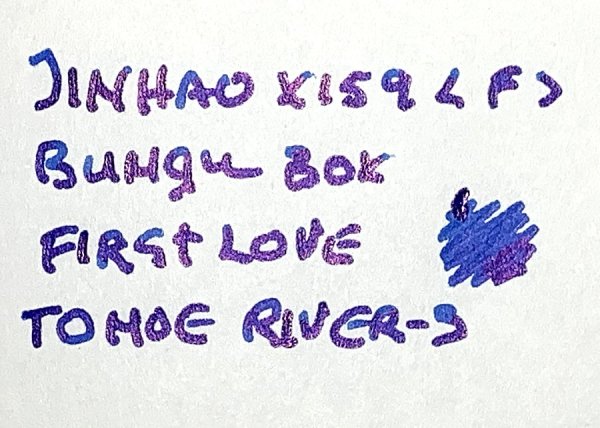 JINHAO X159 < F >
BUNGU BOX
FIRST LOVE
TOMOE RIVER-S